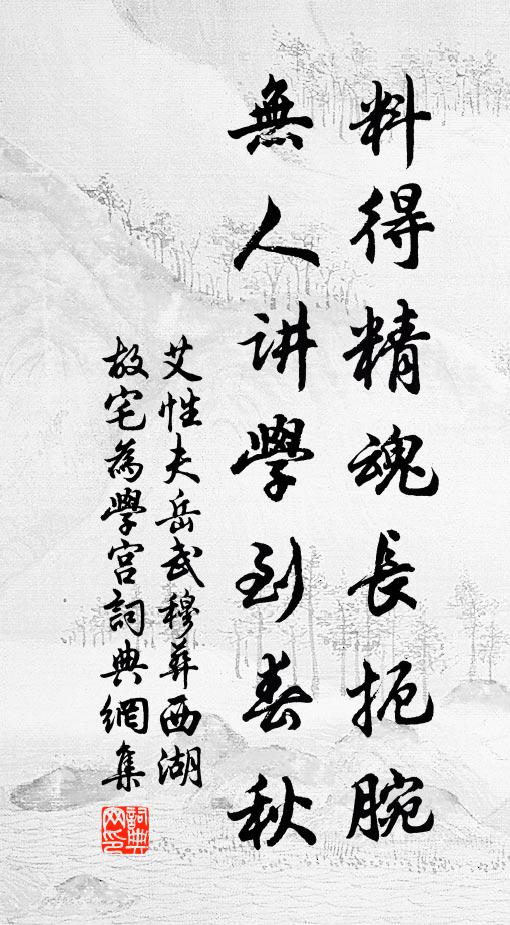 料得精魂長扼腕
無人讲學到春秋
艾性夫岳武穆葬西湖
故宅為學宮詞典網集
詞典网印